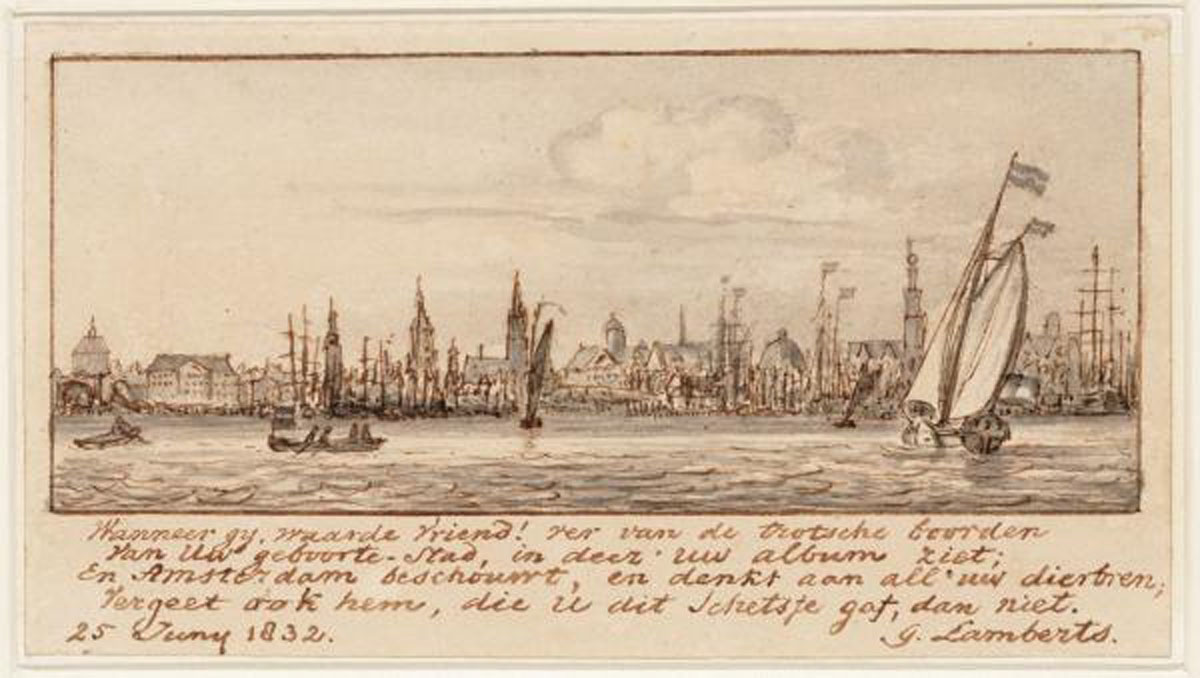 Wanneer gy, waarde Vriend! ver van de trotsche boorden
Van Uw geboorte-Stad, in deez' uw album ziet;
En Amsterdam beschouwt, en denkt aan all' uw dierbren;
Vergeet ook hem, die U dit Schetsje gaf, dan niet.
25 Juny 1832.
G. Lamberts.